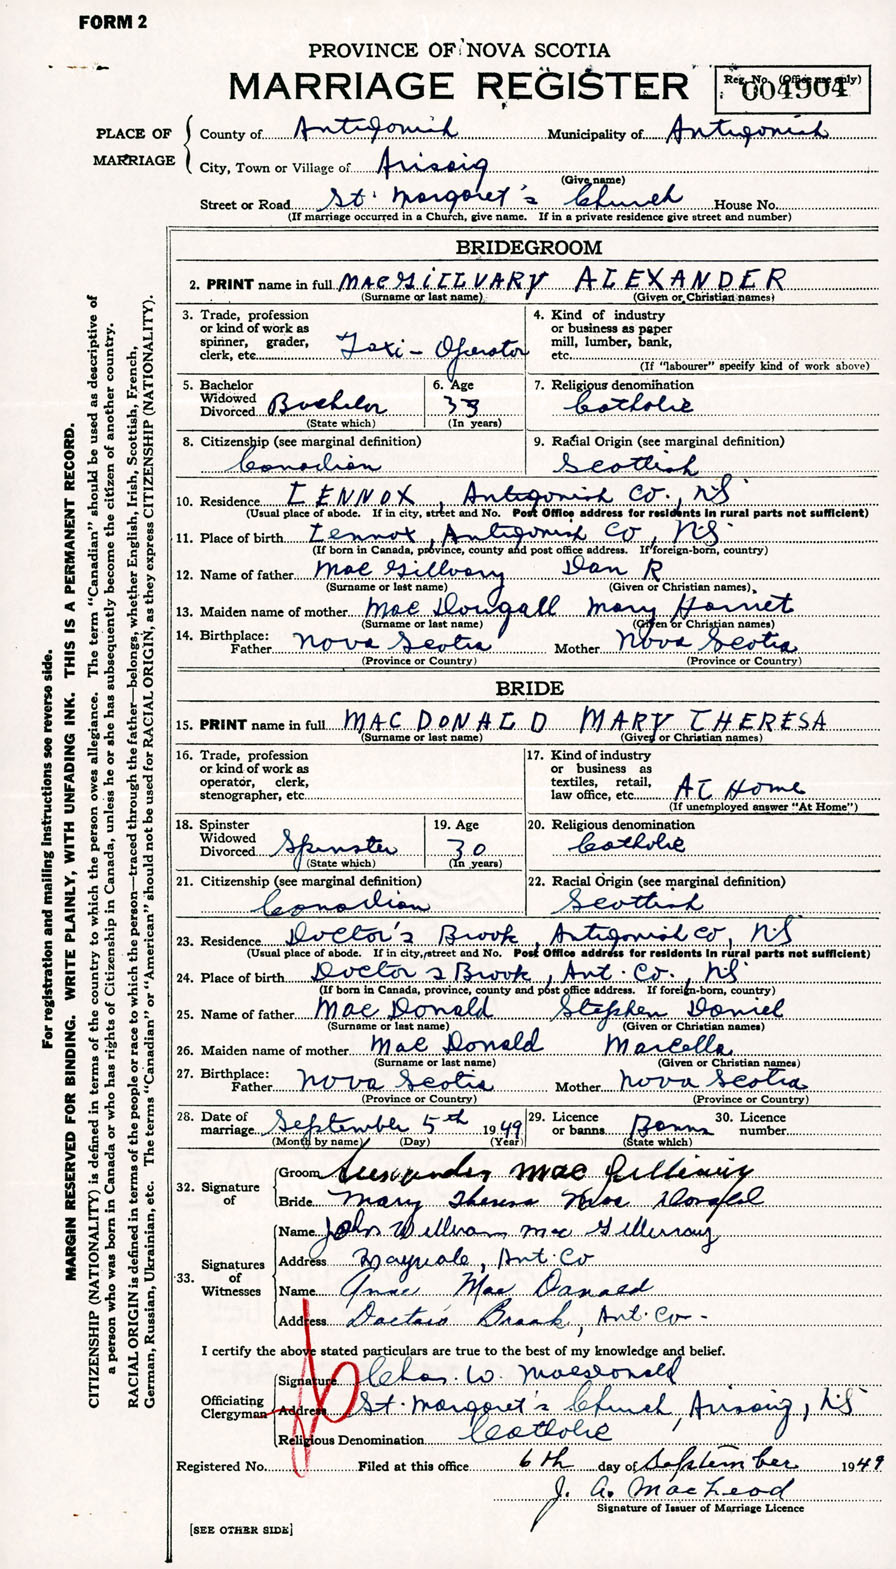 FORM 2
PROVINCE OF NOVA SCOTIA
MARRIAGE REGISTER
Reg. No. (Office use only)
004904
PLACE OF MARRIAGE
County of Antigonish Municipality of Antigonish
City, Town or Village of Arisaig
(Give name)
Street or Road St. Margaret's Church House No.
(If marriage occurred in a Church, give name. If in a private residence give street and number)
BRIDEGROOM
2. PRINT name in full MACGILLVARY ALEXANDER
(Surname or last name) (Given or Christian names)
3. Trade, profession or kind of work as spinner, grader, clerk, etc. Taxi-Operator
4. Kind of industry or business as paper mill, lumber, bank, etc.
(If "labourer" specify kind of work above)
5. Bachelor Widowed Divorced Bachelor
(State which)
6. Age 33
(In years)
7. Religious denomination
Catholic
8. Citizenship (see marginal definition)
Canadian
9. Racial Origin (see marginal definition)
Scottish
10. Residence LENNOX, Antigonish Co., NS
(Usual place of abode. If in city, street and No. Post Office address for residents in rural parts not sufficient)
11. Place of birth Lennox, Antigonish Co, NS
(If born in Canada, province, county and post office address. If foreign-born, country)
12. Name of father Mac Gillvary Dan R
(Surname or last name) (Given or Christian names)
13. Maiden name of mother Mac Dougall Mary Harriet
(Surname or last name) (Given or Christian names)
14. Birthplace: Father Nova Scotia Mother Nova Scotia
(Province or Country) (Province or Country)
BRIDE
15. PRINT name in full MACDONALD MARY THERESA
(Surname or last name) (Given or Christian names)
16. Trade, profession or kind of work as operator, clerk, stenographer, etc.
17. Kind of industry or business as textiles, retail, law office, etc. At Home
(If unemployed answer "At Home")
18. Spinster Widowed Divorced Spinster
(State which)
19. Age 30
(In years)
20. Religious denomination
Catholic
21. Citizenship (see marginal definition)
Canadian
22. Racial Origin (see marginal definition)
Scottish
23. Residence Doctor's Brook, Antigonish Co, NS
(Usual place of abode. If in city, street and No. Post Office address for residents in rural parts not sufficient)
24. Place of birth Doctor's Brook, Ant. Co., NS
(If born in Canada, province, county and post office address. If foreign-born, country)
25. Name of father Mac Donald Stephen Daniel
(Surname or last name) (Given or Christian names)
26. Maiden name of mother Mac Donald Marcella
(Surname or last name) (Given or Christian names)
27. Birthplace: Father Nova Scotia Mother Nova Scotia
(Province or Country) (Province or Country)
28. Date of marriage September 5th 1949
(Month by name) (Day) (Year)
29. Licence or banns Banns
(State which)
30. Licence number
32. Signature of
Groom Alexander Mac Gillivray
Bride Mary Theresa Mac Donald
33. Signatures of Witnesses
Name John William MacGillivray
Address Ant. Co
Name Anne Mac Donald
Address Doctors Brook, Ant. Co-
I certify the above stated particulars are true to the best of my knowledge and belief.
Officiating Clergyman
Signature Chas. W. MacDonald
Address St. Margaret's Church, Arisaig, NS
Religious Denomination Catholic
Registered No. Filed at this office 6th day of September 1949
J. A. MacLeod
Signature of Issuer of Marriage Licence
[SEE OTHER SIDE]
For registration and mailing instructions see reverse side.
MARGIN RESERVED FOR BINDING. WRITE PLAINLY, WITH UNFADING INK. THIS IS A PERMANENT RECORD.
CITIZENSHIP (NATIONALITY) is defined in terms of the country to which the person owes allegiance. The term "Canadian" should be used as descriptive of
a person who was born in Canada or who has rights of Citizenship in Canada, unless he or she has subsequently become the citizen of another country.
RACIAL ORIGIN is defined in terms of the people or race to which the person—traced through the father—belongs, whether English, Irish, Scottish, French,
German, Russian, Ukrainian, etc. The terms "Canadian" or "American" should not be used for RACIAL ORIGIN, as they express CITIZENSHIP (NATIONALITY).